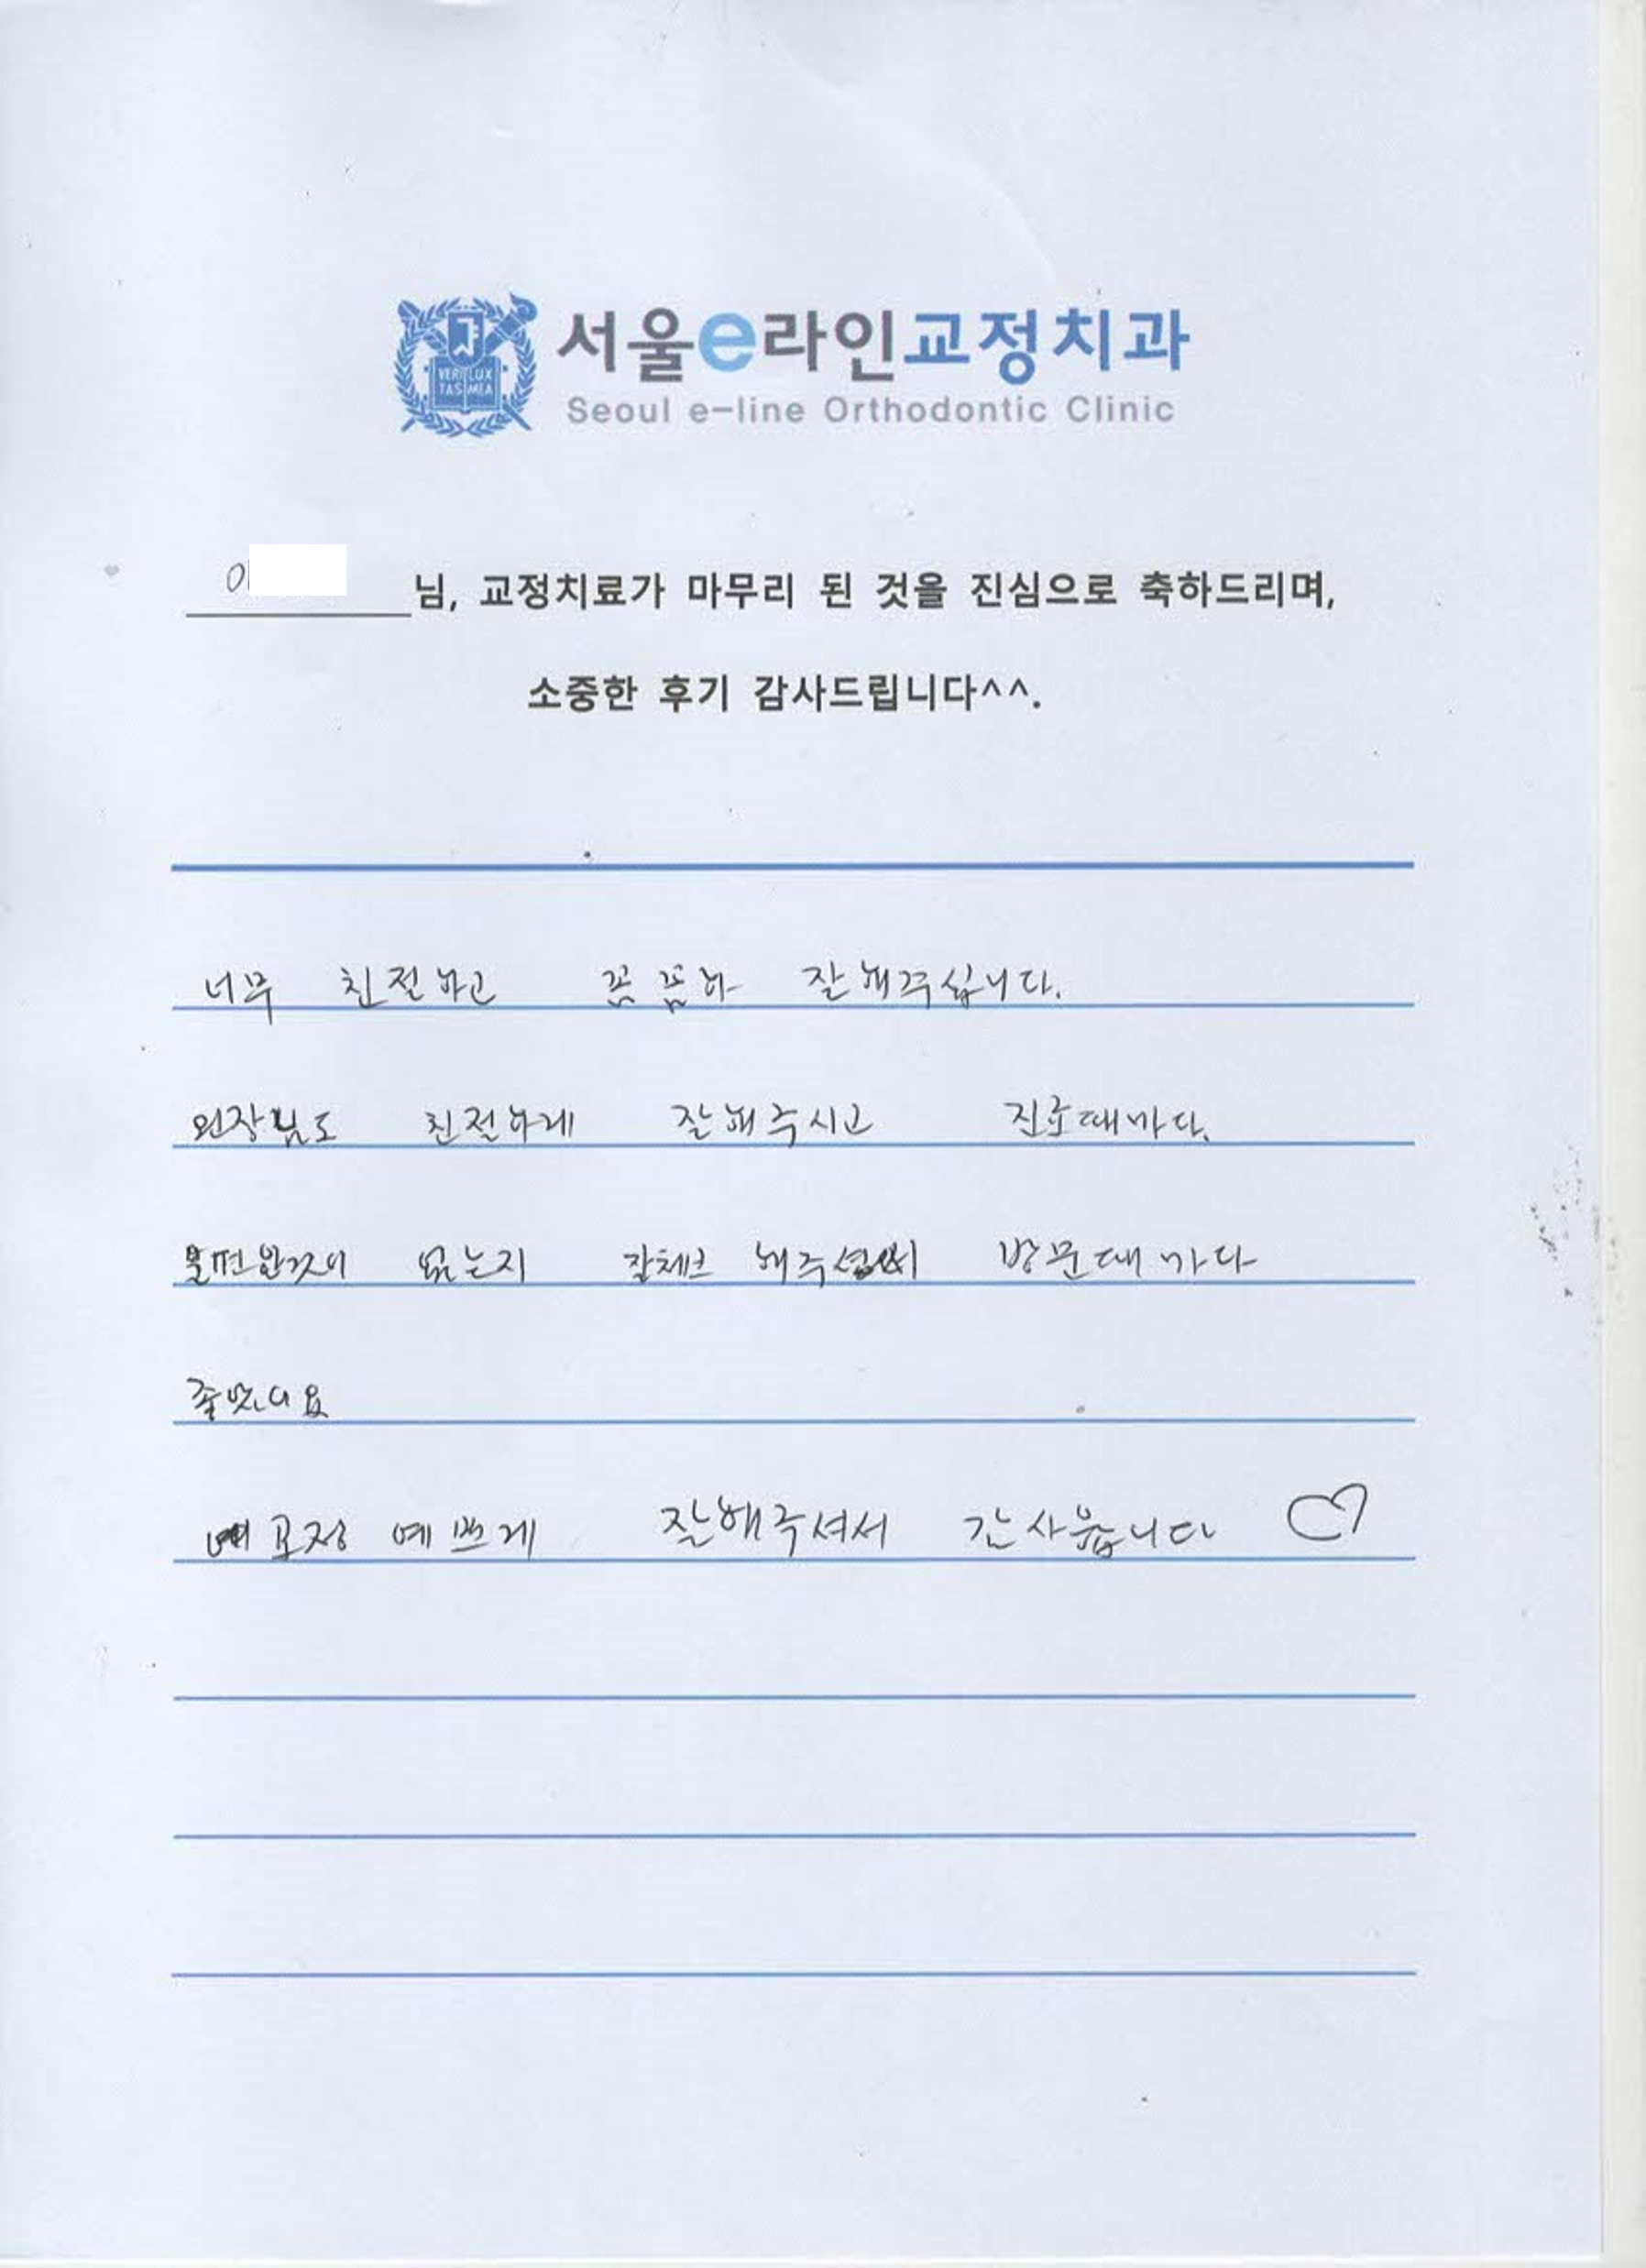 VERI LUX
TAS MEA
서울e라인교정치과
Seoul e-line Orthodontic Clinic
님, 교정치료가 마무리 된 것을 진심으로 축하드리며,
소중한 후기 감사드립니다^^.
너무 친절하고 꼼꼼하 잘해주십니다.
원장님도 친절하게 잘해주시고 진료때마다.
불편한것이 없는지 잘체크 해주셨 방문때마다
좋았어요
교정 예쁘게 잘해주셔서 감사합니다 ♡